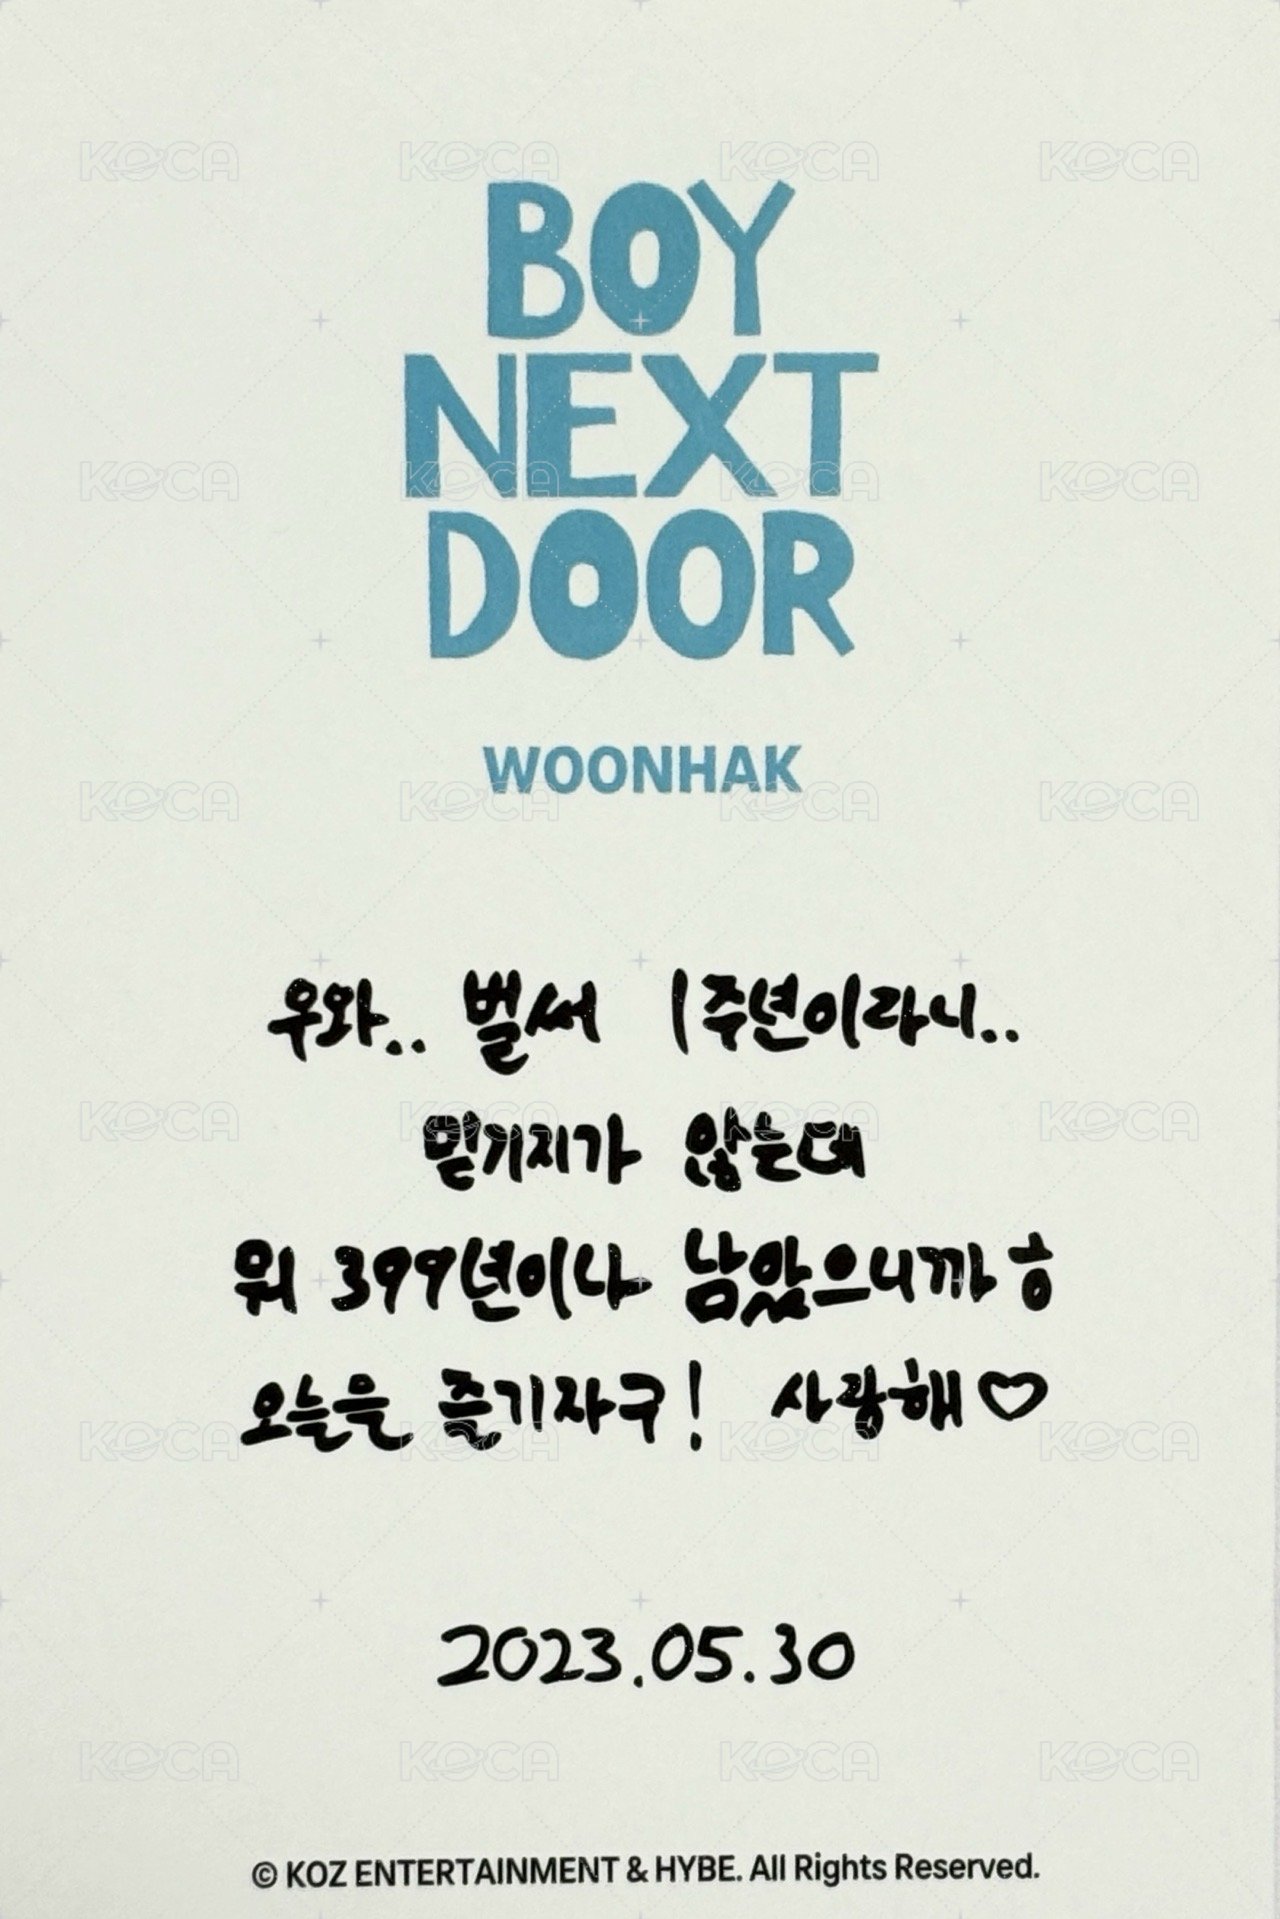 BOY
NEXT
DOOR
WOONHAK
우와.. 벌써 1주년이라니..
믿기지가 않는데
뭐 399년이나 남았으니까 ㅎ
오늘을 즐기자구! 사랑해♡
2023.05.30
© KOZ ENTERTAINMENT & HYBE. All Rights Reserved.
KOCA